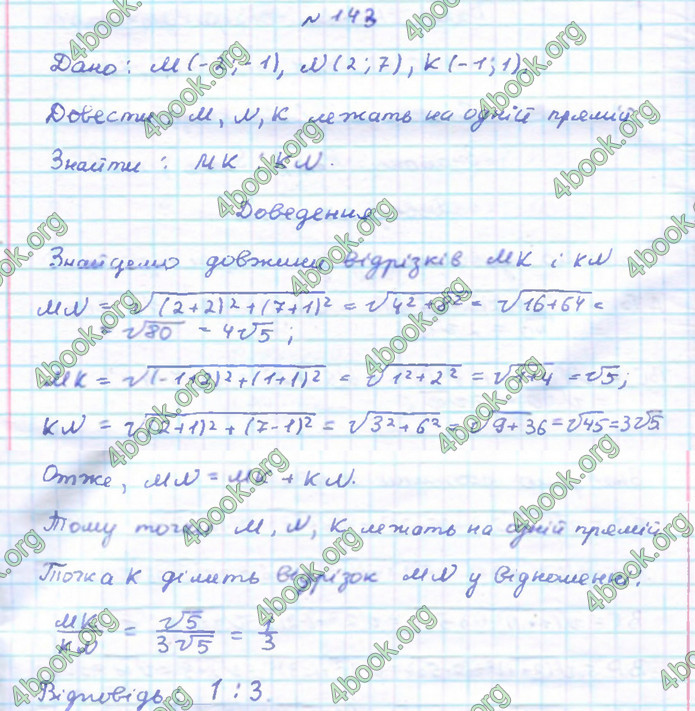 № 143
Дано: M(-2;-1), N(2;7), K(-1;1).
Довести M, N, K лежать на одній прямій
Знайти: MK : KN.
Доведення
Знайдемо довжини відрізків MK і KN
MN = √((2+2)²+(7+1)²) = √(4²+8²) = √(16+64) =
= √80 = 4√5;
MK = √((-1+2)²+(1+1)²) = √(1²+2²) = √(1+4) = √5;
KN = √((2+1)²+(7-1)²) = √(3²+6²) = √(9+36) = √45 = 3√5
Отже, MN = MK + KN.
Тому точки M, N, K лежать на одній прямій
Точка K ділить відрізок MN у відношенні:
MK/KN = √5/3√5 = 1/3
Відповідь: 1 : 3.
4book.org